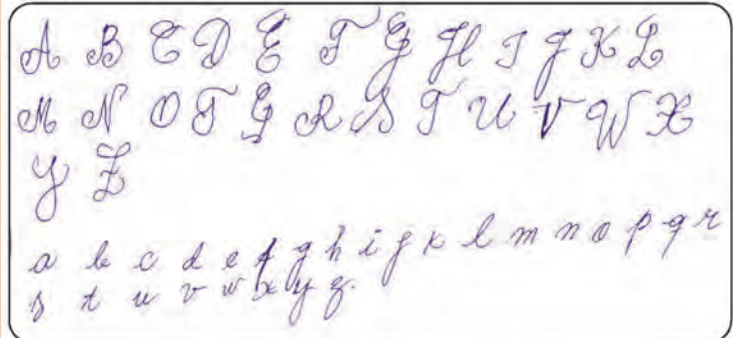 A B C D E F G H I J K L
M N O P Q R S T U V W X
Y Z
a b c d e f g h i j k l m n o p q r
s t u v w x y z.